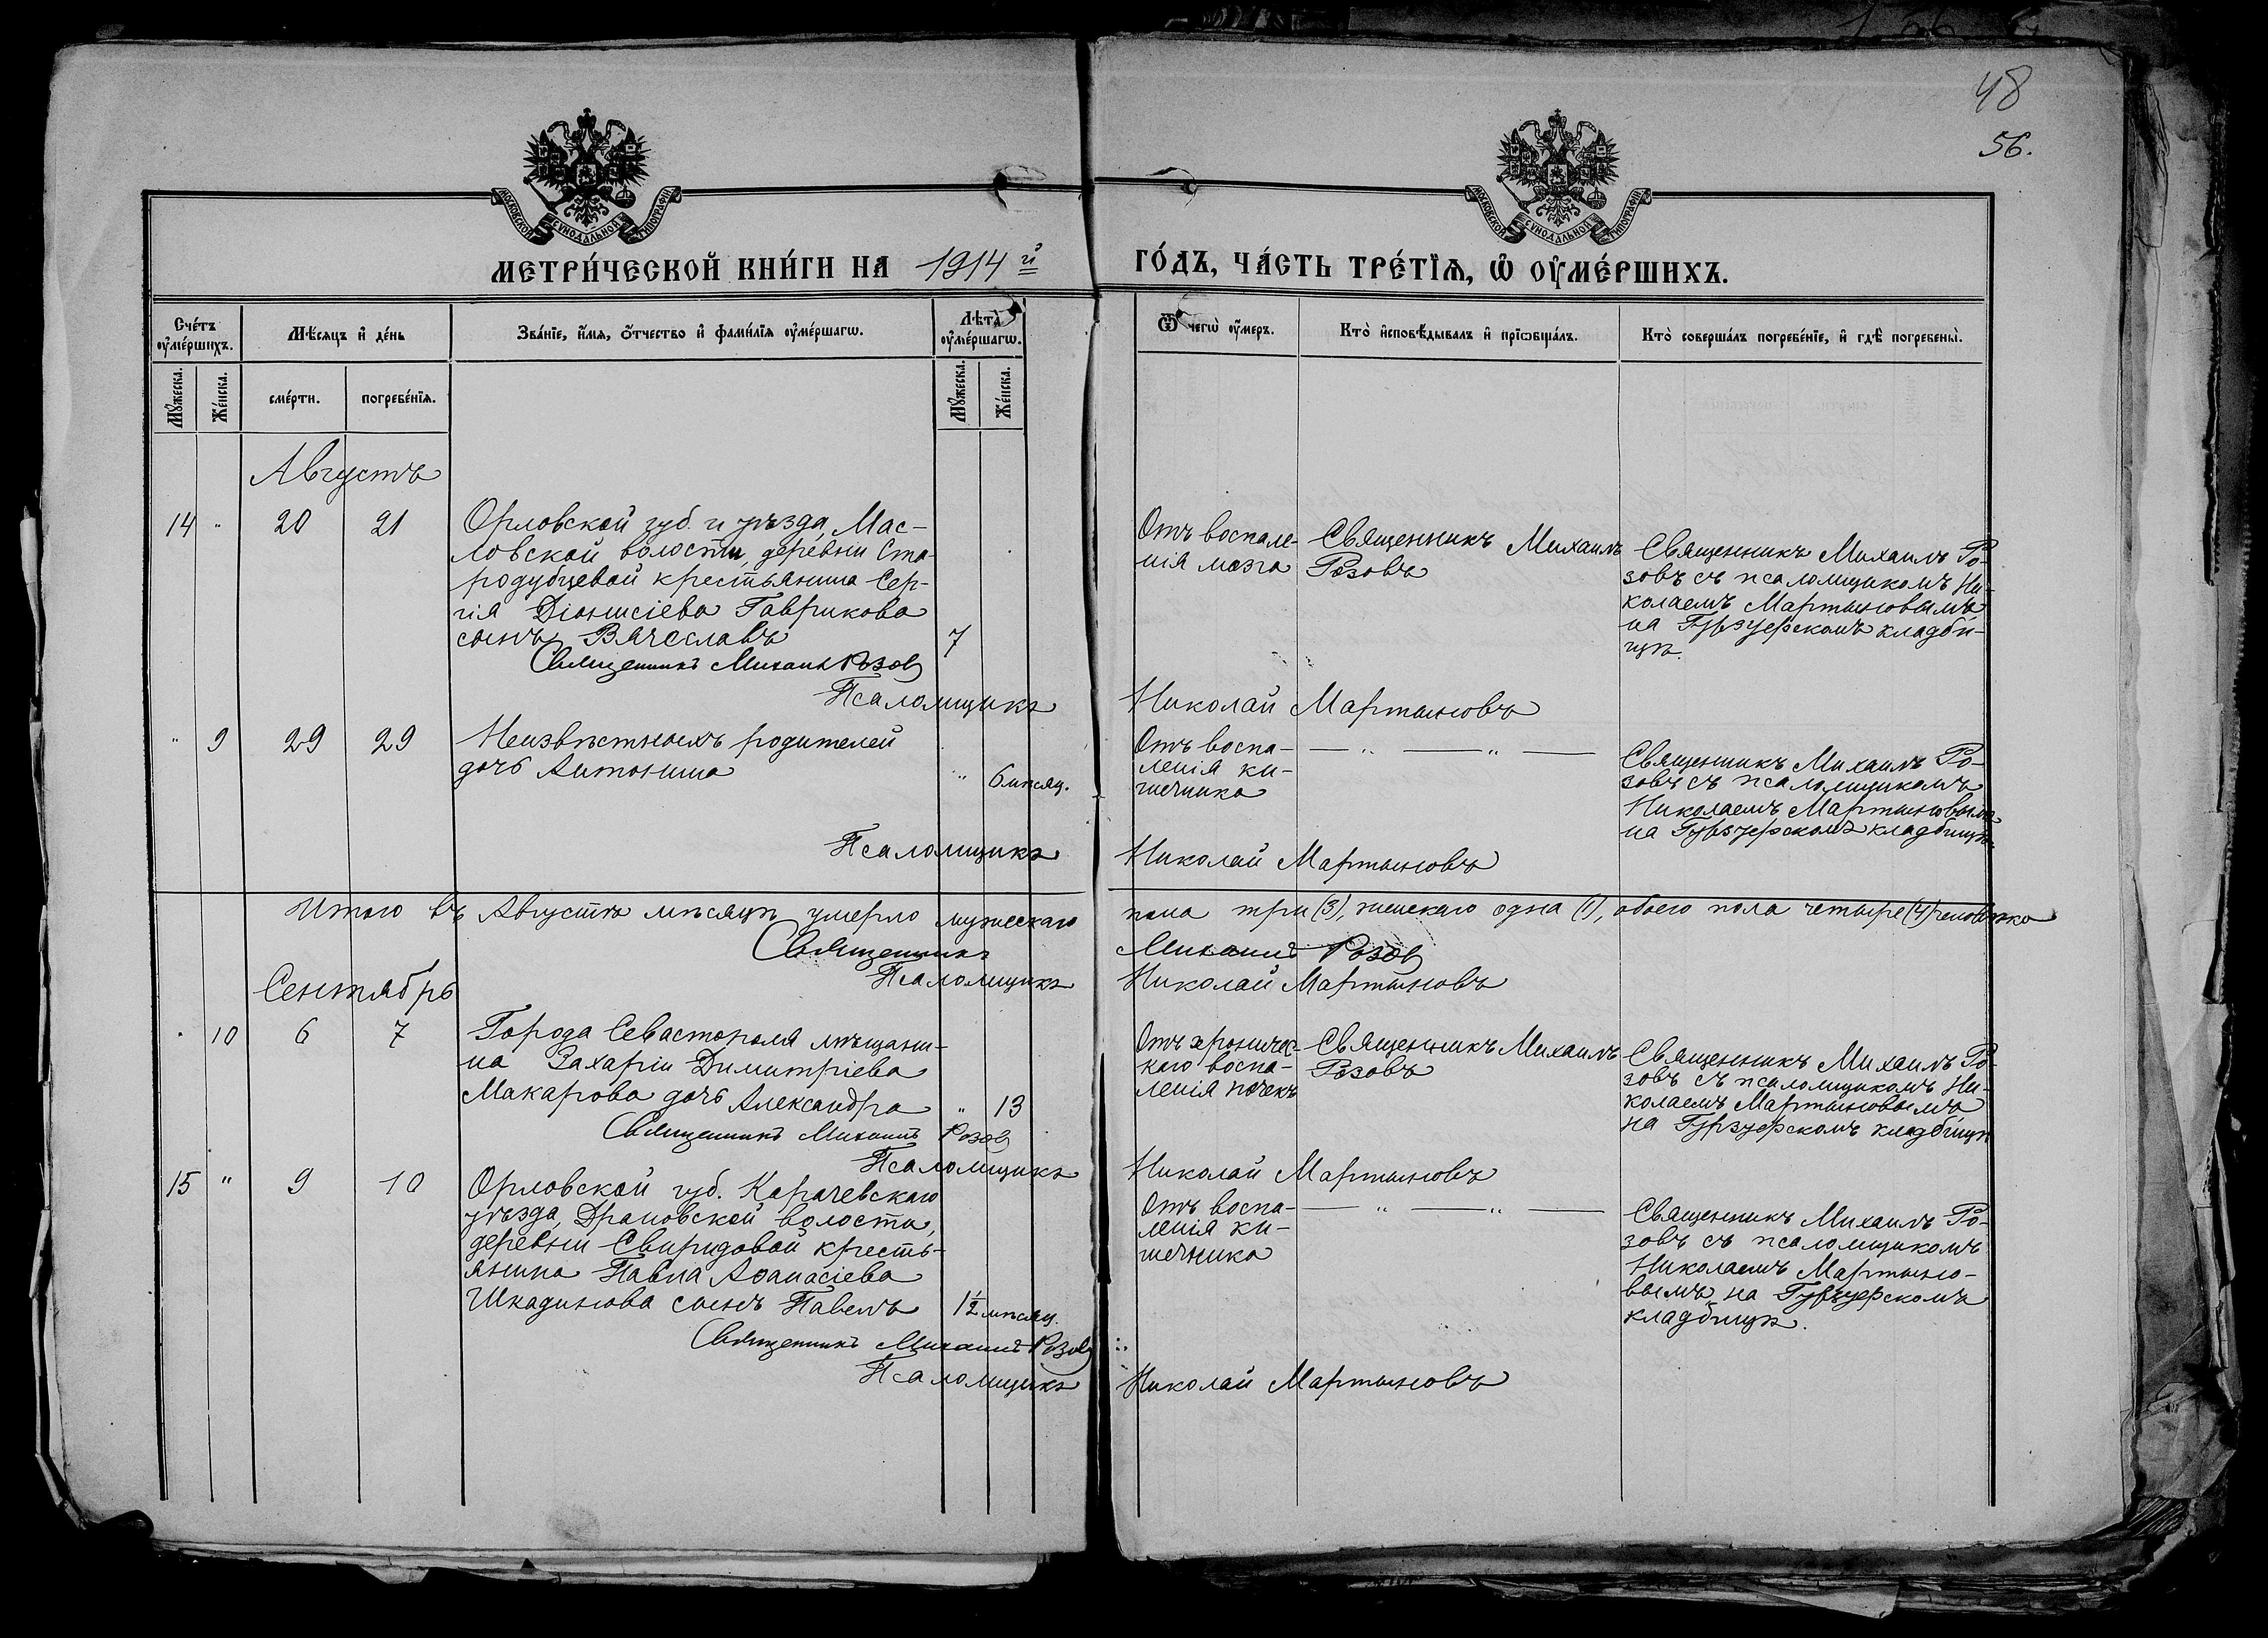 48
56.
МОСКОВСКОЙ СУНОДАЛЬНОЙ ТИПОГРАФІИ
МОСКОВСКОЙ СУНОДАЛЬНОЙ ТИПОГРАФІИ
МЕТРИ́ЧЕСКОЙ КНИ́ГИ НА 1914 й ГО́ДЪ, ЧА́СТЬ ТРЕ́ТЇѦ, Ѡ҆ ОУ҆МЕ́РШИХЪ.
Сче́тъ оу҆ме́ршихъ.
Мѣ́сяцъ и҆ де́нь
Зва́нїе, и҆́мя, ѻ҆́тчество и҆ фами́лїя оу҆ме́ршагѡ.
Лѣта̀ оу҆ме́ршагѡ.
Ѿ чегѡ̀ оу҆́меръ.
Кто̀ и҆сповѣ́дывалъ и҆ прїѡбща́лъ.
Кто̀ соверша́лъ погребе́нїе, и҆ гдѣ̀ погребены̀.
Мꙋ́жеска.
Же́нска.
сме́рти.
погребе́нїя.
Мꙋ́жеска.
Же́нска.
Августъ
14 " 20 21
Орловской губ. и уѣзда, Мас-
ловской волости, деревни Ста-
родубцевой крестьянина Сер-
гія Діонисіева Гаврикова
сынъ Вячеславъ 7
Отъ воспале-
нія мозга
Священникъ Михаилъ
Розовъ
Священникъ Михаилъ Ро-
зовъ съ псаломщикомъ Ни-
колаемъ Мартыновымъ
на Гурзуфскомъ кладби-
щѣ.
Священникъ Михаил Розов
Псаломщикъ Николай Мартыновъ
" 9 29 29
Неизвѣстныхъ родителей
дочь Антонина " 6 мѣсяц.
Отъ воспа-
ленія ки-
шечника
— " — " —
Священникъ Михаилъ Ро-
зовъ съ псаломщикомъ
Николаемъ Мартыновымъ
на Гурзуфскомъ кладбищѣ.
Псаломщикъ Николай Мартыновъ
Итого въ Августѣ мѣсяцѣ умерло мужескаго пола три (3), женскаго одна (1), обоего пола четыре (4) человѣка
Священникъ Михаилъ Розов
Псаломщикъ Николай Мартыновъ
Сентябрь
" 10 6 7
Города Севастополя мѣщани-
на Захаріи Димитріева
Макарова дочь Александра " 13
Отъ хроничес-
каго воспа-
ленія почекъ
Священникъ Михаилъ
Розовъ
Священникъ Михаилъ Ро-
зовъ съ псаломщикомъ Ни-
колаемъ Мартыновымъ
на Гурзуфскомъ кладбищѣ
Священникъ Михаилъ Розов
Псаломщикъ Николай Мартыновъ
15 " 9 10
Орловской губ. Карачевскаго
уѣзда, Драновской волости,
деревни Свиридовой кресть-
янина Павла Аѳанасіева
Шкадинова сынъ Павелъ 1½ мѣсяц.
Отъ воспа-
ленія ки-
шечника
— " — " —
Священникъ Михаилъ Ро-
зовъ съ псаломщикомъ
Николаемъ Мартыно-
вымъ на Гурзуфскомъ
кладбищѣ.
Священникъ Михаилъ Розов
Псаломщикъ Николай Мартыновъ